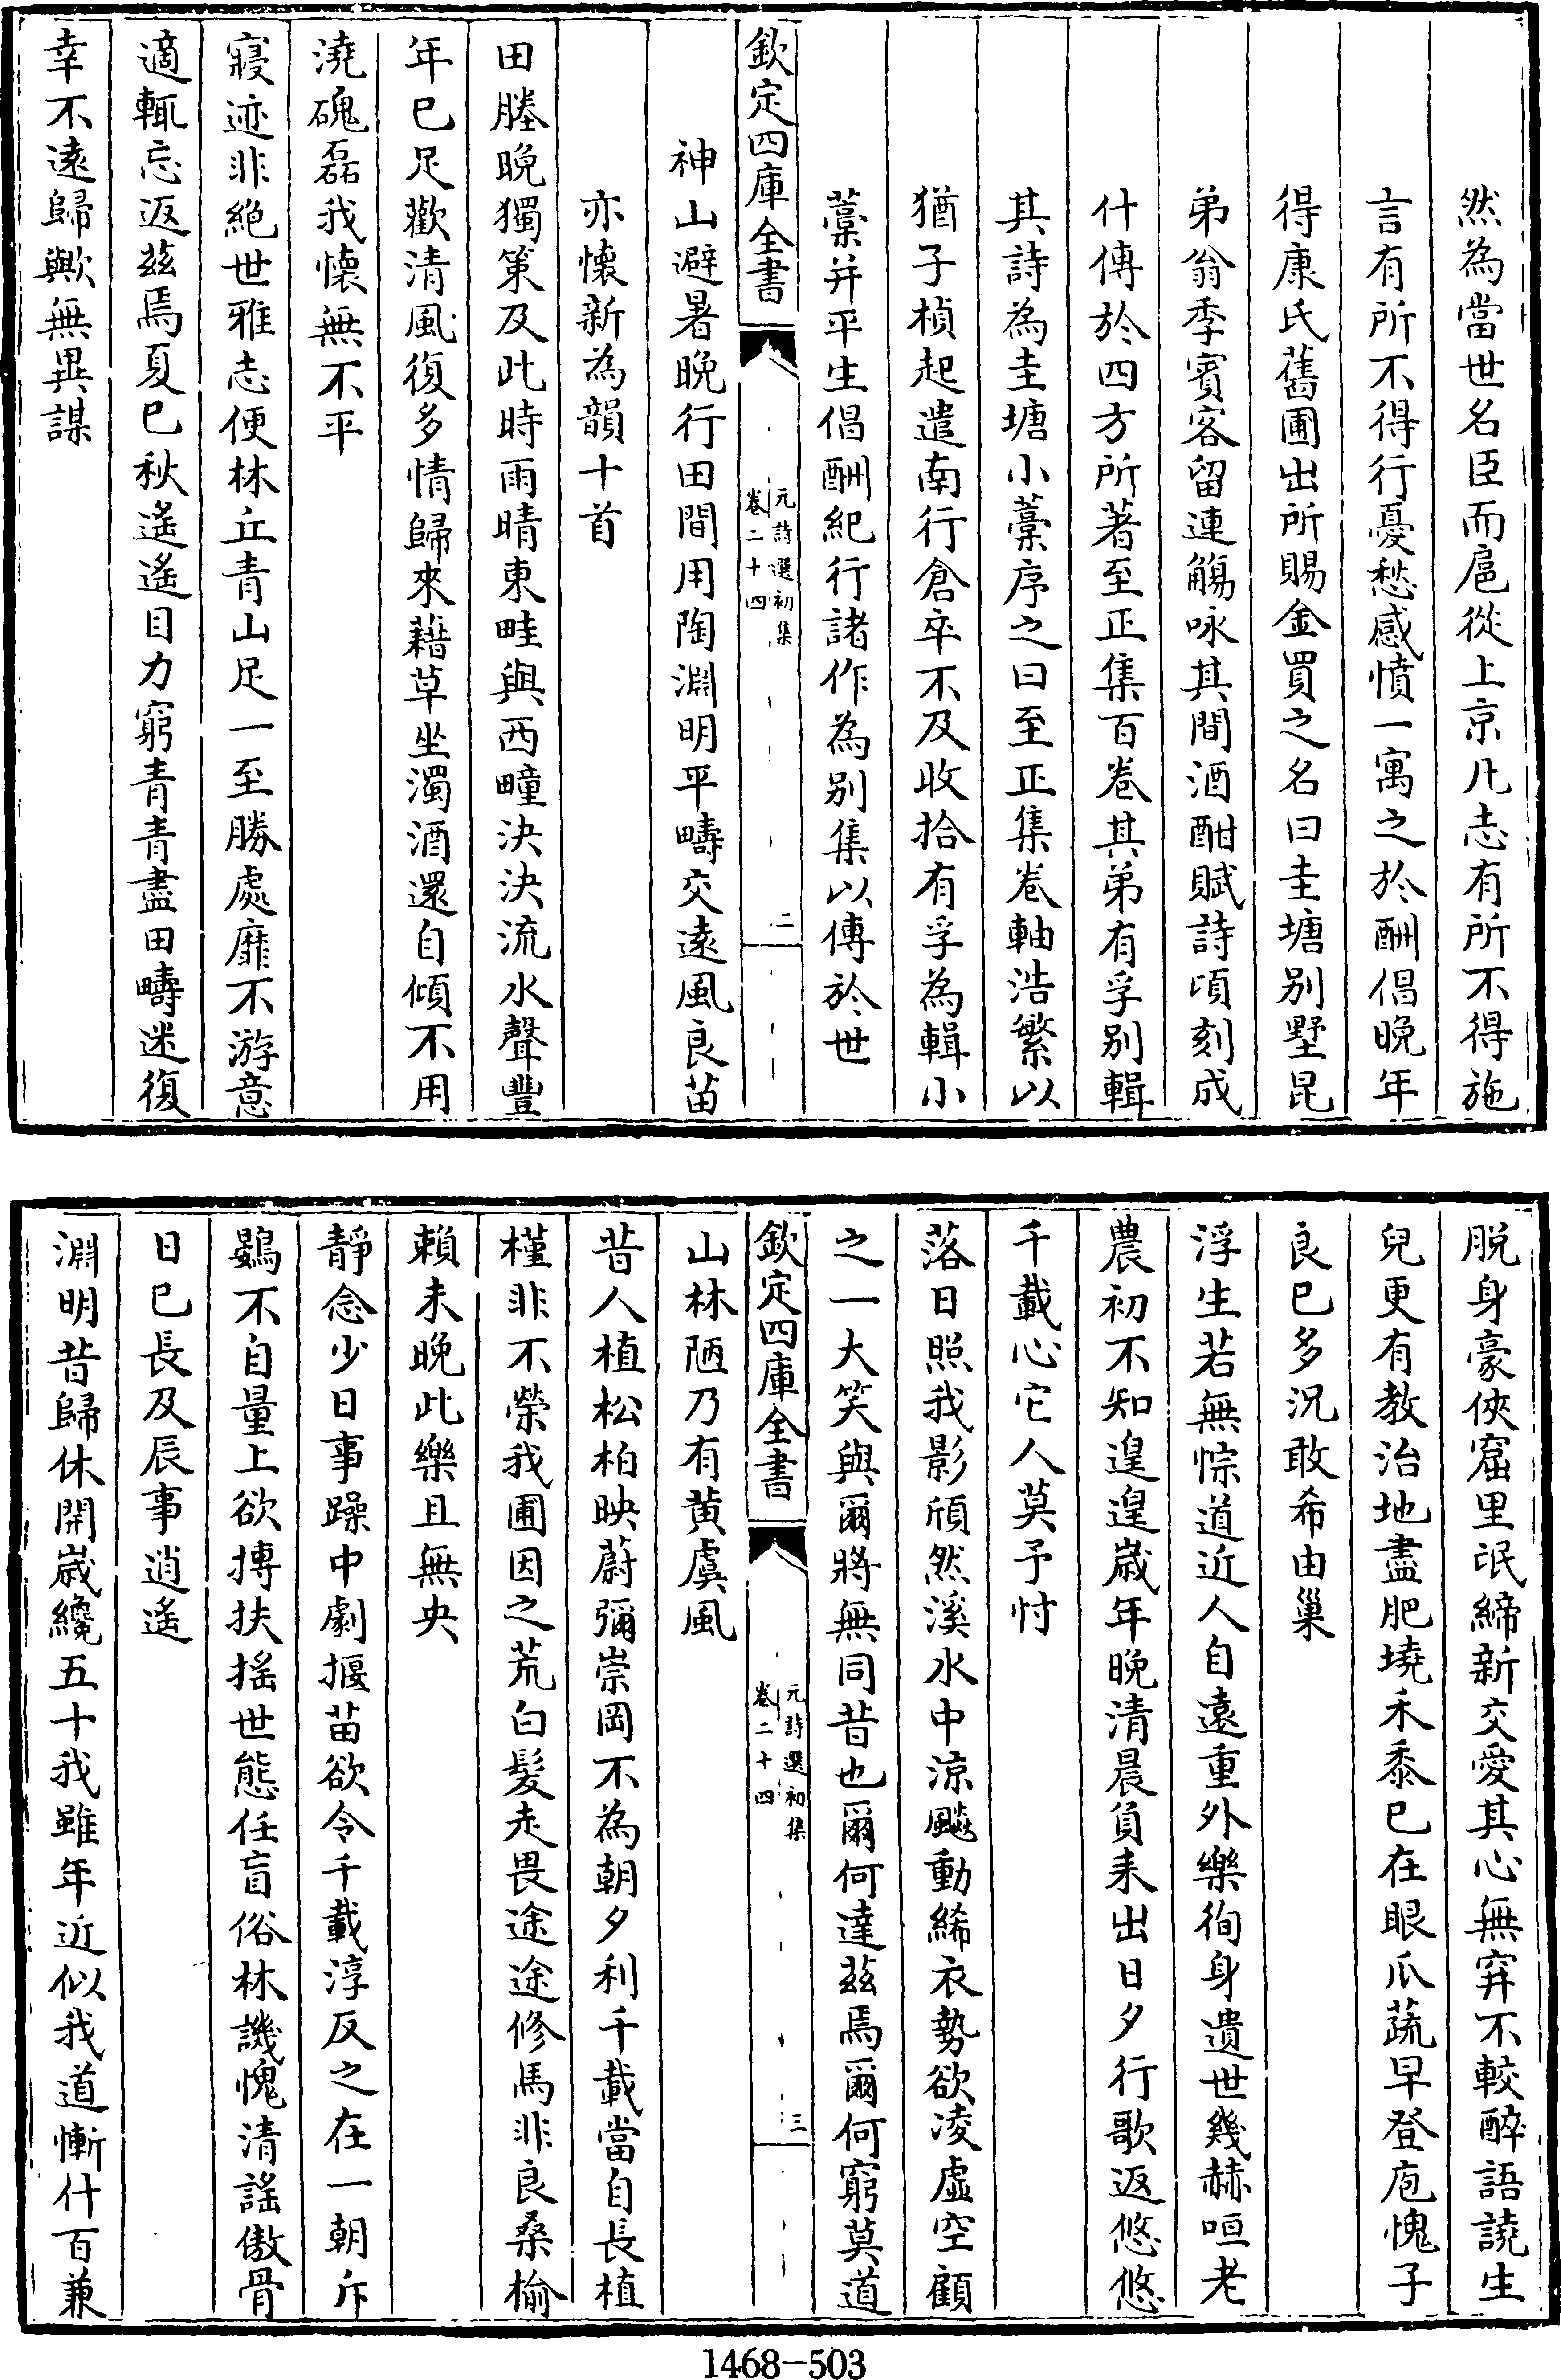 然為當世名臣而扈從上京凡志有所不得施
言有所不得行憂愁感憤一寓之於酬倡晚年
得康氏舊圃出所賜金買之名曰圭塘别墅昆
弟翁季賓客留連觴咏其間酒酣賦詩頃刻成
什傳於四方所著至正集百卷其弟有孚别輯
其詩為圭塘小藁序之曰至正集卷軸浩繁以
猶子楨起遣南行倉卒不及收拾有孚為輯小
藁并平生倡酬紀行諸作為别集以傳於世
欽定四庫全書
元詩選初集
卷二十四
二
神山避暑晚行田間用陶淵明平疇交遠風良苗
亦懷新為韻十首
田塍晚獨策及此時雨晴東畦與西疃決決流水聲豐
年已足歡清風復多情歸來藉草坐濁酒還自傾不用
澆磈磊我懷無不平
寢迹非絶世雅志便林丘青山足一至勝處靡不游意
適輒忘返兹焉夏已秋遙遙目力窮青青盡田疇迷復
幸不遠歸歟無異謀
脱身豪俠窟里氓締新交愛其心無穽不較醉語譊生
兒更有教治地盡肥墝禾黍已在眼瓜蔬早登庖愧子
良已多況敢希由巢
浮生若無悰道近人自遠重外樂徇身遺世幾赫咺老
農初不知遑遑歲年晚清晨負耒出日夕行歌返悠悠
千載心它人莫予忖
落日照我影頎然溪水中涼飈動絺衣勢欲凌虚空顧
之一大笑與爾將無同昔也爾何達兹焉爾何窮莫道
欽定四庫全書
元詩選初集
卷二十四
三
山林陋乃有黄虞風
昔人植松柏映蔚彌崇岡不為朝夕利千載當自長植
槿非不榮我圃因之荒白髪走畏途途修馬非良桑榆
賴未晚此樂且無央
靜念少日事躁中劇揠苗欲令千載淳反之在一朝斥
鷃不自量上欲搏扶摇世態任盲俗林譏愧清謡傲骨
日已長及辰事逍遙
淵明昔歸休開歲纔五十我雖年近似我道慚什百兼
1468-503